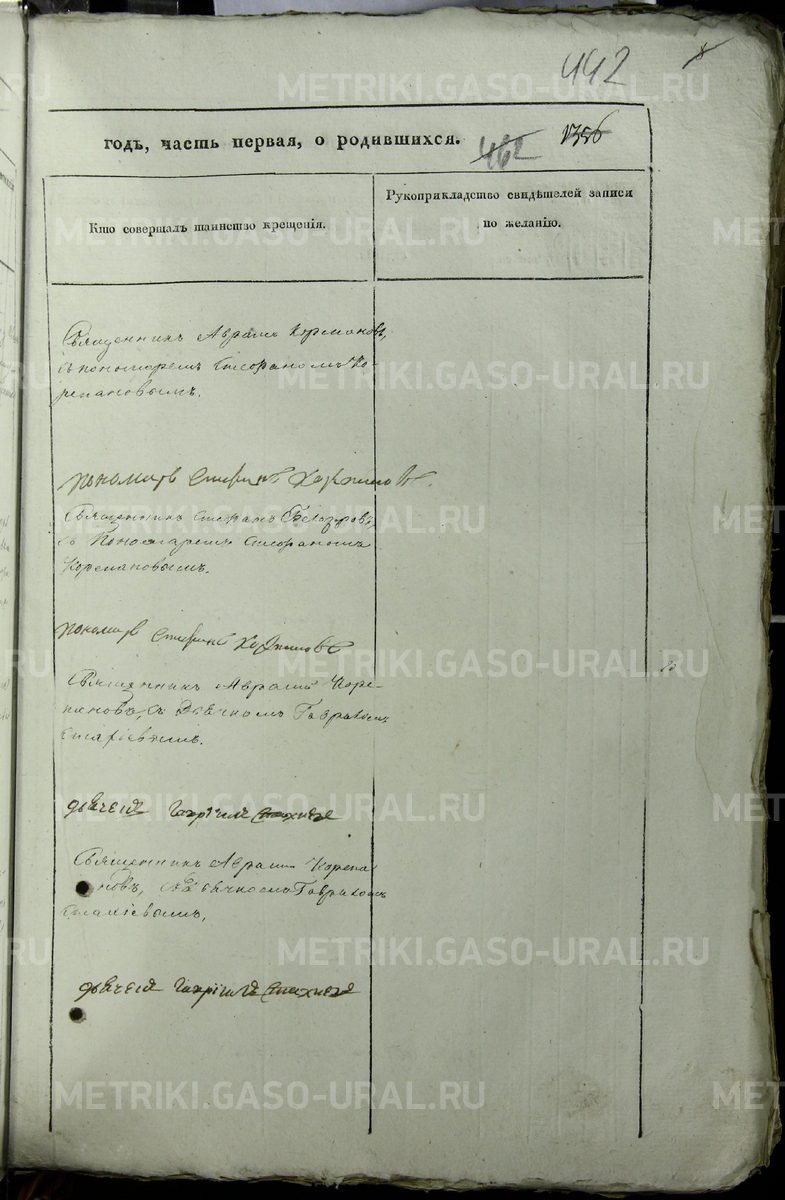 442
годъ, часть первая, о родившихся. 462 1356
Кто совершалъ таинство крещенія.
Рукоприкладство свидѣтелей записи
по желанію.
Священникъ Аврамъ Корепановъ,
съ пономаремъ Стефаномъ Ко-
репановымъ.
пономарь Стефанъ
Священникъ Стефанъ
съ Пономаремъ Стефаномъ
Корепановымъ.
пономарь Стефанъ
Священникъ Аврамъ Коре-
пановъ, съ Дьячкомъ Гавриломъ
Стахіевымъ.
дьячекъ Гаврілъ Стахиев
Священникъ Аврамъ Корепа
новъ, съ Дьячкомъ Гавриломъ
Стахіевымъ,
дьячекъ Гаврілъ Стахиев
METRIKI.GASO-URAL.RU